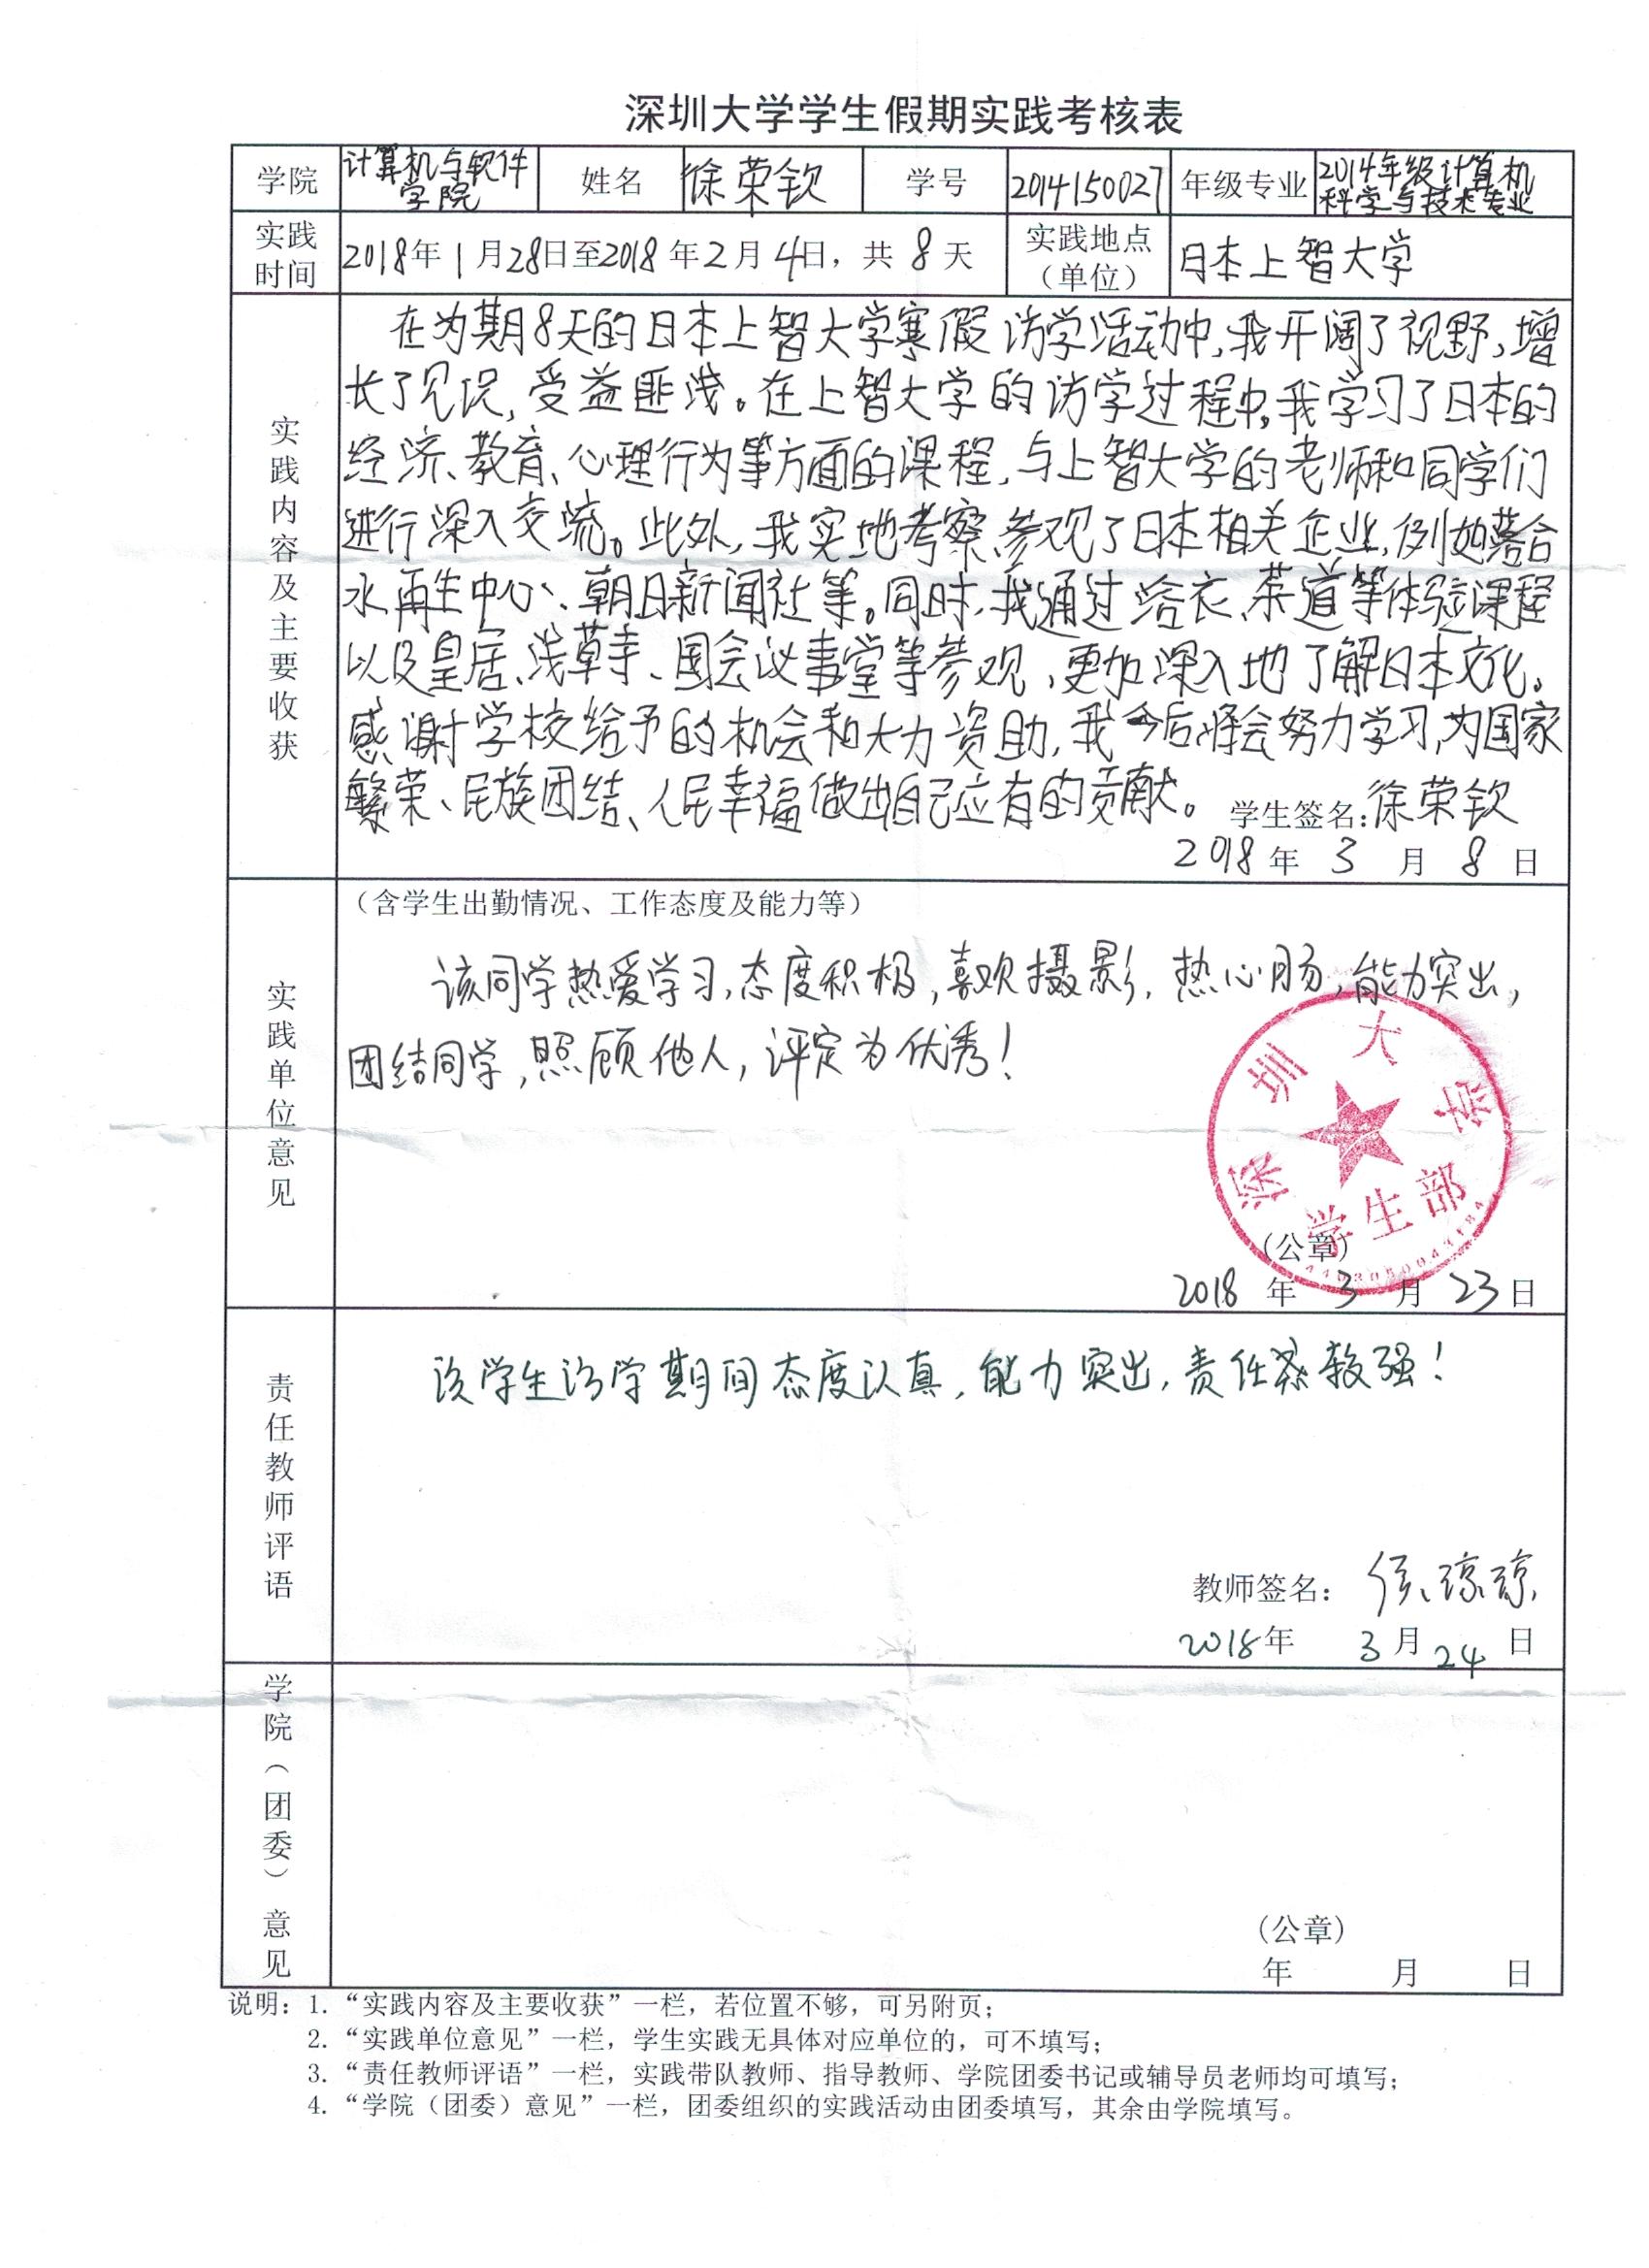 深圳大学学生假期实践考核表
学院 计算机与软件学院 姓名 徐荣钦 学号 2014150027 年级专业 2014年级计算机科学与技术专业
实践时间 2018年1月28日至2018年2月4日，共8天 实践地点（单位） 日本上智大学
实践内容及主要收获
在为期8天的日本上智大学寒假访学活动中,我开阔了视野,增
长了见识,受益匪浅。在上智大学的访学过程中,我学习了日本的
经济、教育、心理行为等方面的课程,与上智大学的老师和同学们
进行深入交流。此外,我实地考察、参观了日本相关企业,例如落合
水再生中心、朝日新闻社等。同时,我通过浴衣、茶道等体验课程
以及皇居、浅草寺、国会议事堂等参观,更加深入地了解日本文化。
感谢学校给予的机会和大力资助,我今后将会努力学习,为国家
繁荣、民族团结、人民幸福做出自己应有的贡献。
学生签名:徐荣钦
2018年3月8日
实践单位意见
（含学生出勤情况、工作态度及能力等）
该同学热爱学习,态度积极,喜欢摄影,热心肠,能力突出,
团结同学,照顾他人,评定为优秀!
深圳大学
学生部
(公章)
2018年3月23日
责任教师评语
该学生访学期间态度认真,能力突出,责任感较强!
教师签名: 侯琼琼
2018年3月24日
学院（团委）意见
(公章)
年 月 日
说明：1.“实践内容及主要收获”一栏，若位置不够，可另附页；
2.“实践单位意见”一栏，学生实践无具体对应单位的，可不填写；
3.“责任教师评语”一栏，实践带队教师、指导教师、学院团委书记或辅导员老师均可填写；
4.“学院（团委）意见”一栏，团委组织的实践活动由团委填写，其余由学院填写。